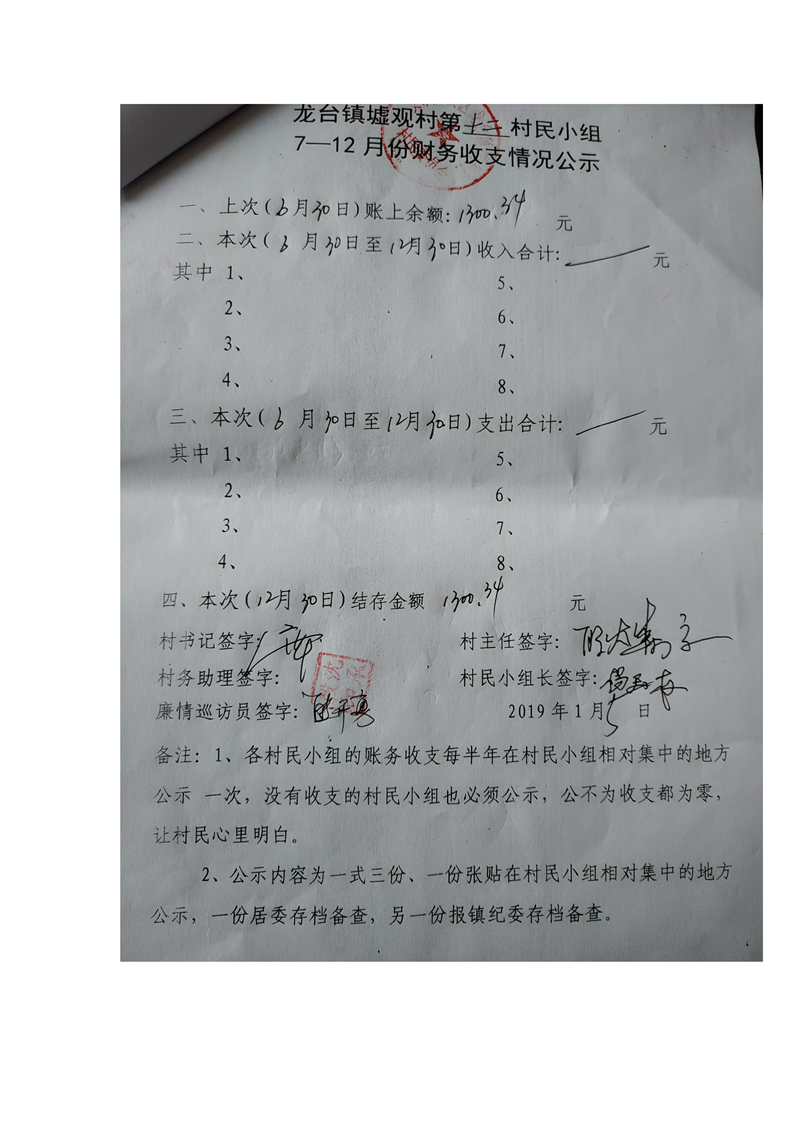 龙台镇墟观村第十二村民小组
7—12月份财务收支情况公示
一、上次(6月30日)账上余额:1300.34元
二、本次(6月30日至12月30日)收入合计:——元
其中 1、 5、
2、 6、
3、 7、
4、 8、
三、本次(6月30日至12月30日)支出合计:——元
其中 1、 5、
2、 6、
3、 7、
4、 8、
四、本次(12月30日)结存金额 1300.34 元
村书记签字: 村主任签字:
村务助理签字: 村民小组长签字:
廉情巡访员签字: 2019年1月5日
备注:1、各村民小组的账务收支每半年在村民小组相对集中的地方
公示 一次，没有收支的村民小组也必须公示，公不为收支都为零，
让村民心里明白。
2、公示内容为一式三份、一份张贴在村民小组相对集中的地方
公示，一份居委存档备查，另一份报镇纪委存档备查。